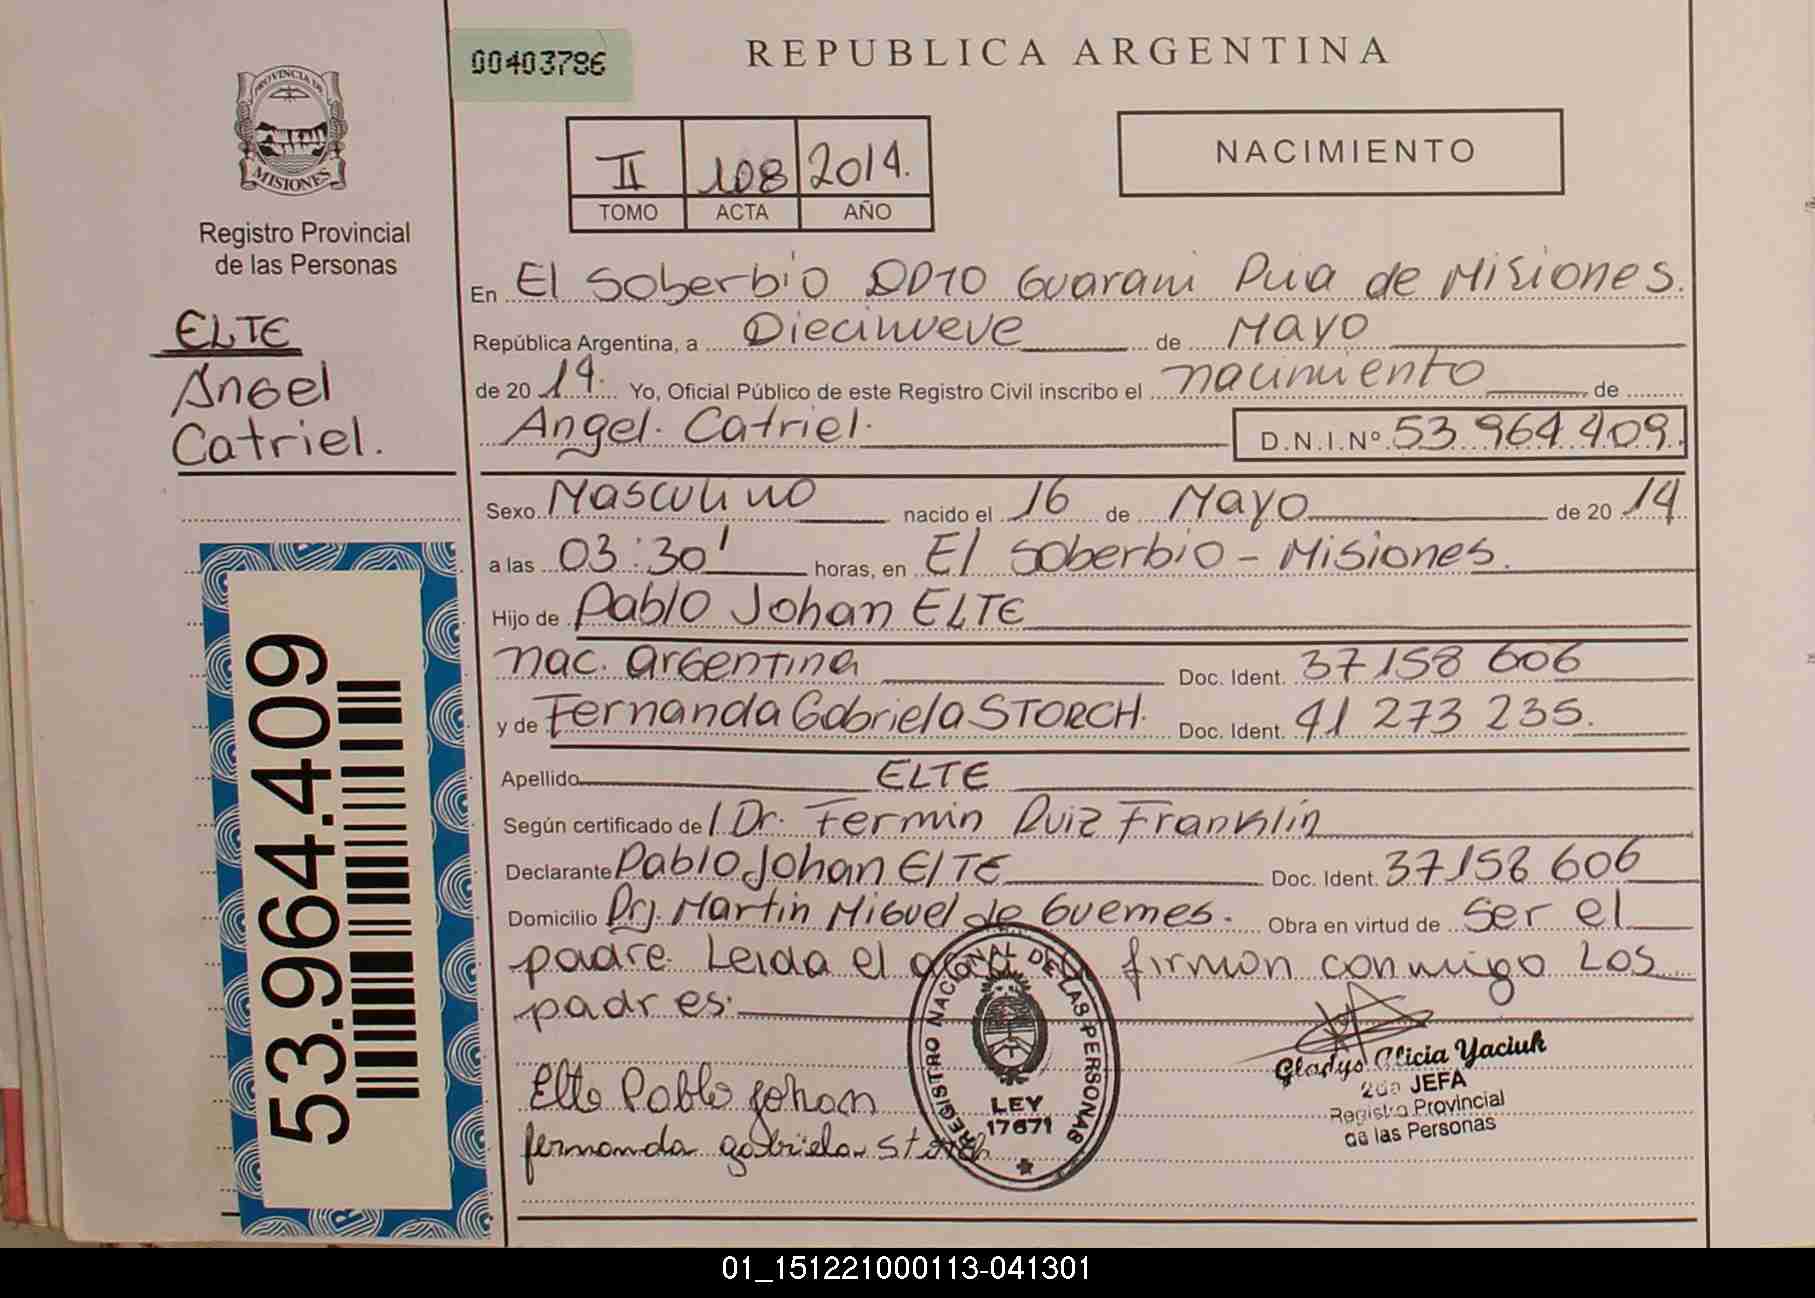 00403786
REPUBLICA ARGENTINA
PROVINCIA DE
MISIONES
Registro Provincial
de las Personas
II 108 2014.
TOMO ACTA AÑO
NACIMIENTO
ELTE
Angel
Catriel.
En El Soberbio DPTO Guarani Pcia de Misiones.
República Argentina, a Diecinueve de Mayo
de 20 14. Yo, Oficial Público de este Registro Civil inscribo el nacimiento de
Angel Catriel. D.N.I.Nº 53.964.409.
Sexo Masculino nacido el 16 de Mayo de 20 14
a las 03:30' horas, en El Soberbio - Misiones.
Hijo de Pablo Johan ELTE
nac. argentina Doc. Ident. 37158 606
y de Fernanda Gabriela STORCH. Doc. Ident. 41 273 235.
Apellido ELTE
Según certificado de / Dr. Fermin Ruiz Franklin
Declarante Pablo Johan ElTE Doc. Ident. 37158 606
Domicilio Prj. Martin Miguel de Guemes. Obra en virtud de Ser el
padre. Leida el acta firman conmigo Los
padres.
Elte Pablo Johan
fernanda gabriela storch
REGISTRO NACIONAL DE LAS PERSONAS
LEY
17671
Gladys Alicia Yaciuk
2da JEFA
Registro Provincial
de las Personas
53.964.409
01_151221000113-041301